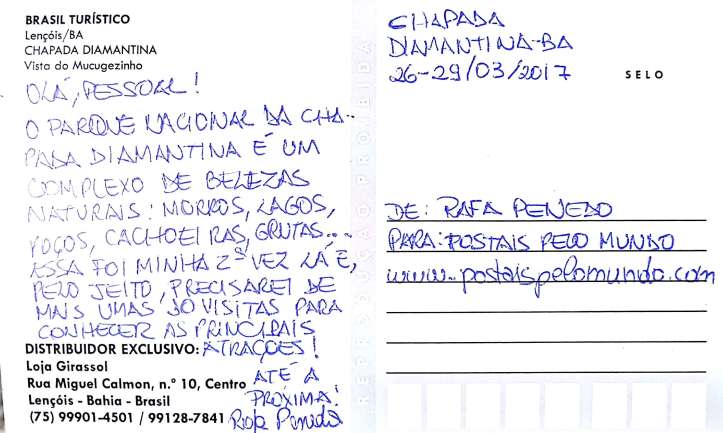 BRASIL TURÍSTICO
Lençóis/BA
CHAPADA DIAMANTINA
Vista do Mucugezinho
OLÁ, PESSOAL!
O PARQUE NACIONAL DA CHA-
PADA DIAMANTINA É UM
COMPLEXO DE BELEZAS
NATURAIS: MORROS, LAGOS,
POÇOS, CACHOEIRAS, GRUTAS...
ESSA FOI MINHA 2ª VEZ LÁ E,
PELO JEITO, PRECISAREI DE
MAIS UMAS 30 VISITAS PARA
CONHECER AS PRINCIPAIS
ATRAÇÕES!
ATÉ A
PRÓXIMA!
Rafa Penedo
DISTRIBUIDOR EXCLUSIVO:
Loja Girassol
Rua Miguel Calmon, n.º 10, Centro
Lençóis - Bahia - Brasil
(75) 99901-4501 / 99128-7841
REPRODUÇÃO PROIBIDA
CHAPADA
DIAMANTINA-BA
26-29/03/2017
SELO
DE: RAFA PENEDO
PARA: POSTAIS PELO MUNDO
www.postaispelomundo.com